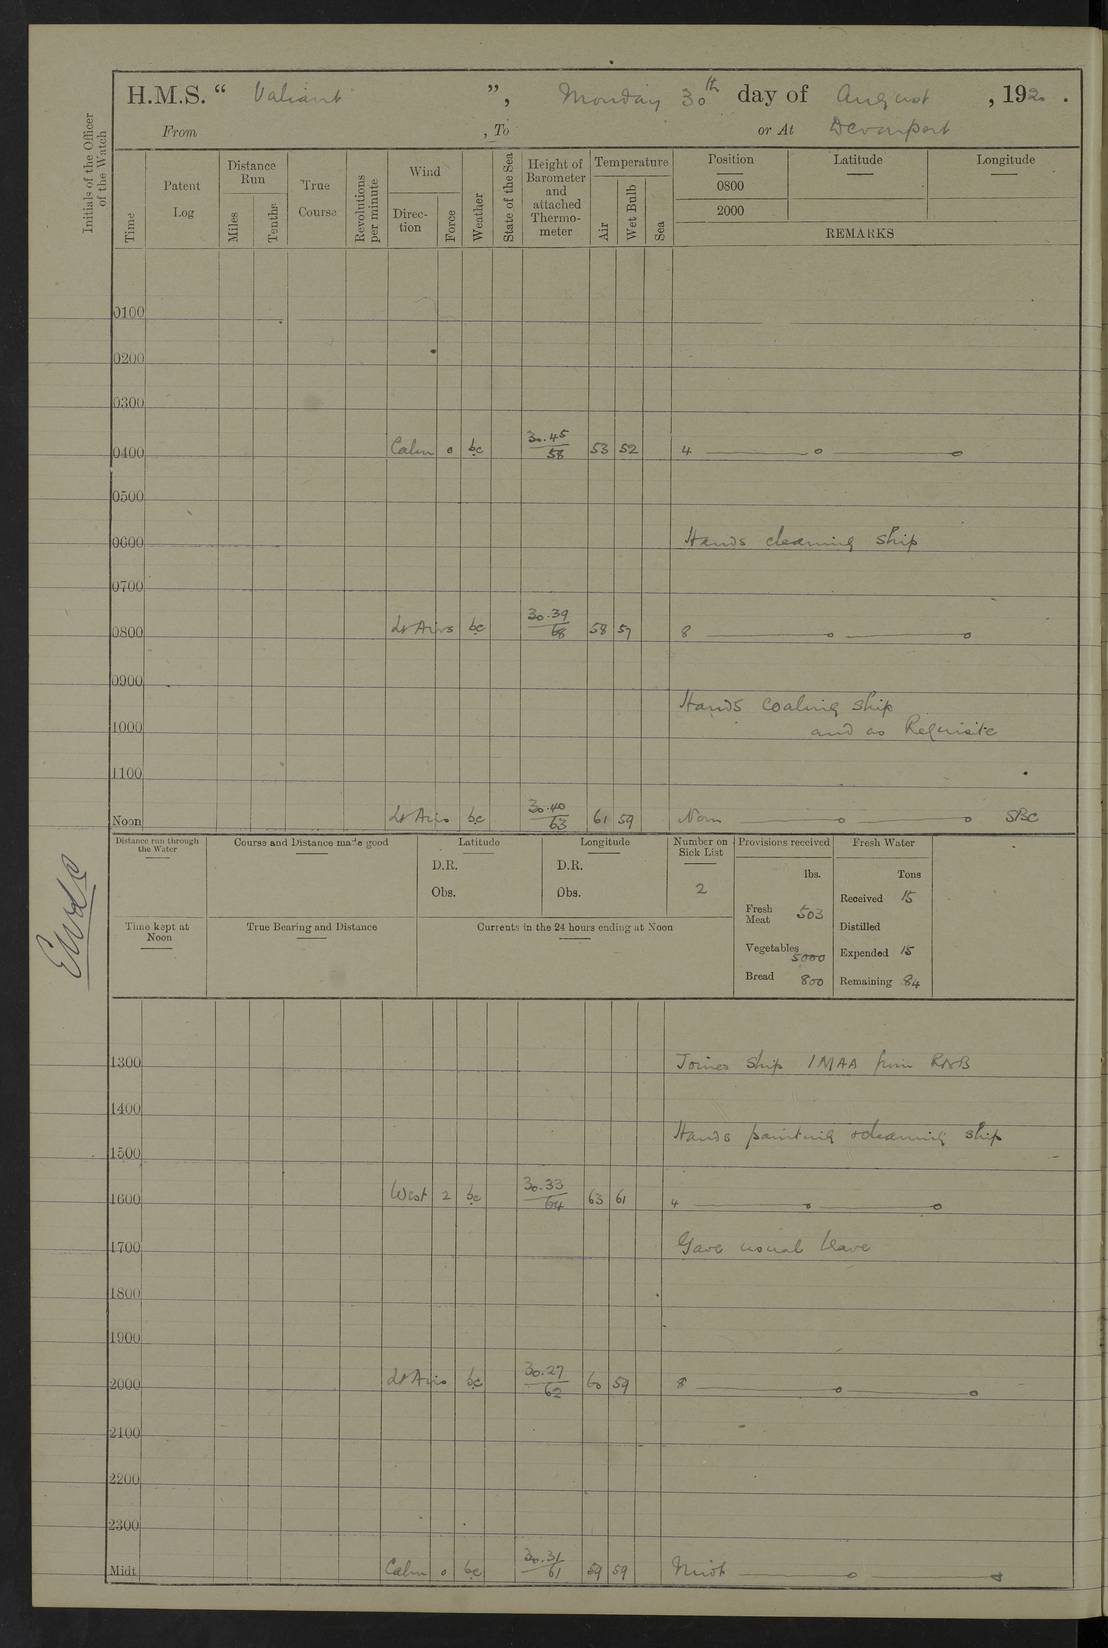 H.M.S. “ Valiant ”, Monday 30th day of August , 1920 .
From , To or At Devonport
Initials of the Officer of the Watch
Time
Patent Log
Distance Run
Miles
Tenths
True Course
Revolutions per minute
Wind
Direction
Force
Weather
State of the Sea
Height of Barometer and attached Thermometer
Temperature
Air
Wet Bulb
Sea
Position Latitude Longitude
0800
2000
REMARKS
0100
0200
0300
0400 Calm 0 bc 30.45/58 53 52 4
0500
0600 Hands cleaning ship
0700
0800 Lt Airs bc 30.39/68 58 57 8
0900
Hands coaling ship
1000 and as Requisite
1100
Noon Lt Airs bc 30.40/63 61 59 Noon SBC
Distance run through the Water
Course and Distance made good
Latitude
D.R.
Obs.
Longitude
D.R.
Obs.
Number on Sick List
2
Provisions received
lbs.
Fresh Meat 503
Vegetables 5000
Bread 800
Fresh Water
Tons
Received 15
Distilled
Expended 15
Remaining 84
Time kept at Noon
True Bearing and Distance
Currents in the 24 hours ending at Noon
1300 Joined ship 1 MAA from RNB
1400
Hands painting & cleaning ship
1500
1600 West 2 bc 30.33/64 63 61 4
1700 Gave usual leave
1800
1900
2000 Lt Airs bc 30.27/62 60 59 8
2100
2200
2300
Midt. Calm 0 bc 30.31/61 59 59 Midt